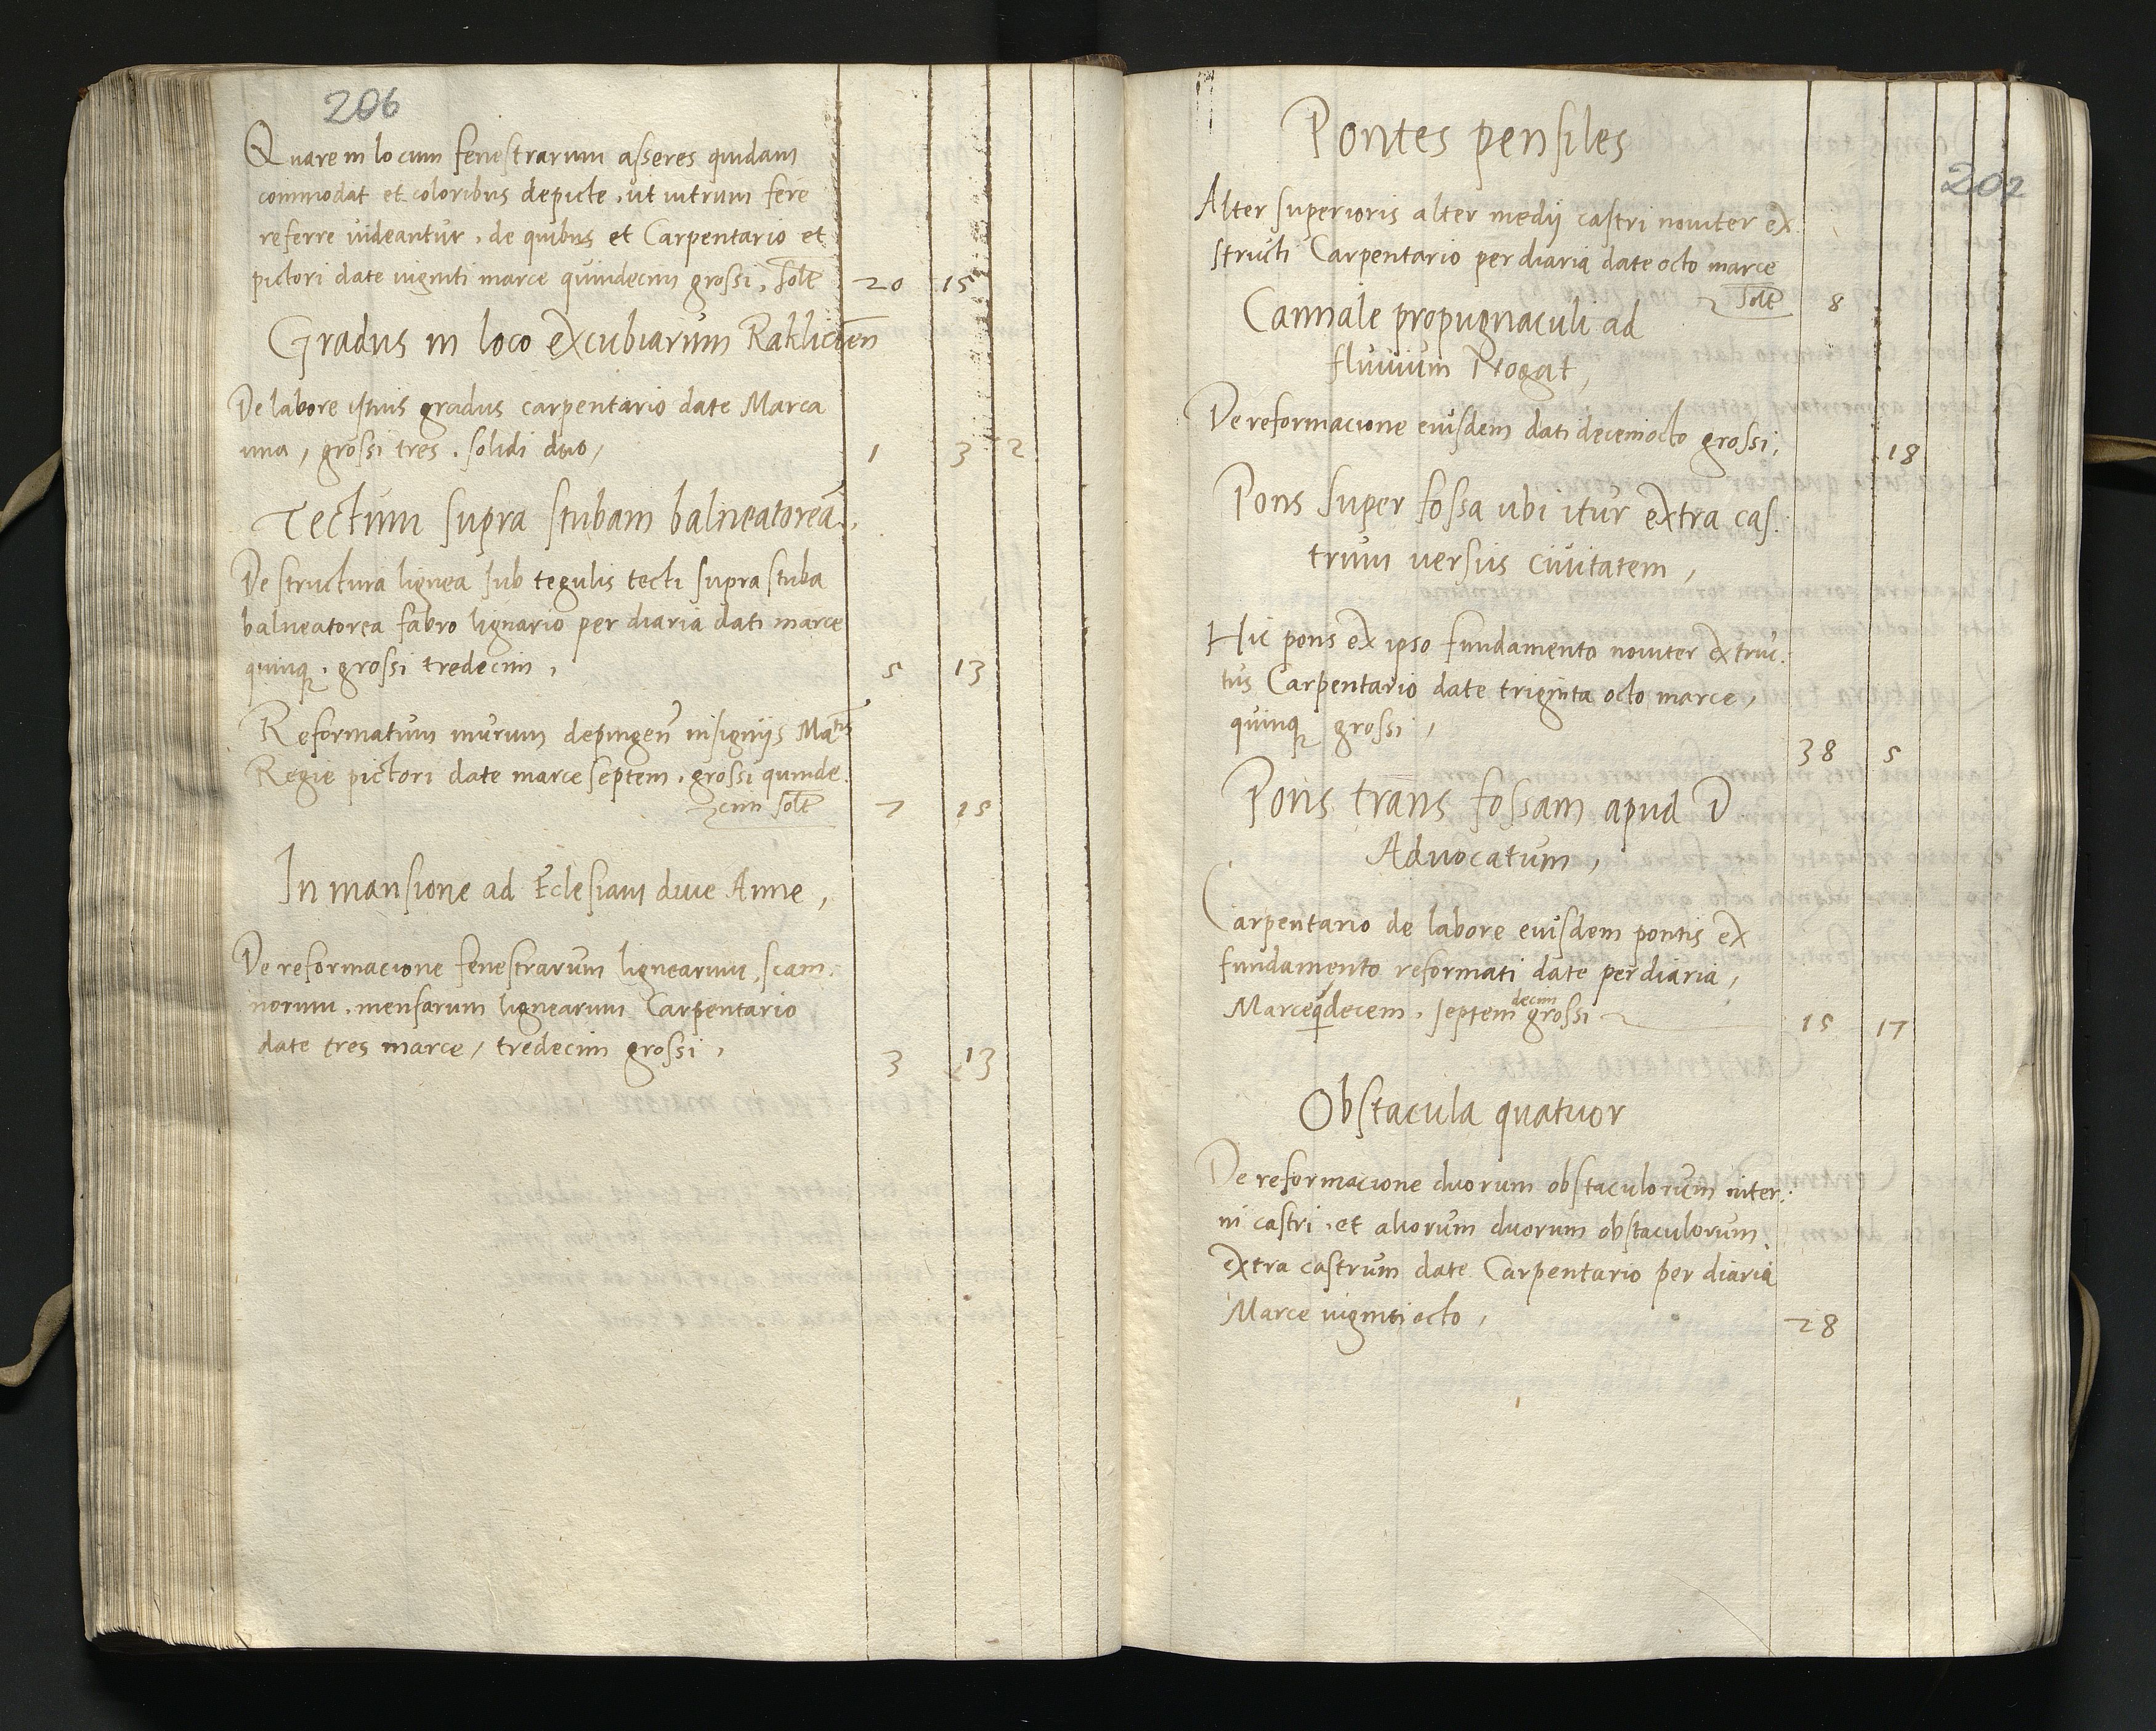 206
Quare in locum fenestrarum asseres quidam
commodat et coloribus depicte, ut vitrum fere
referre videantur, de quibus et Carpentario et
pictori date viginti marce quindecim grossi, solt 20 15
Gradus in loco excubiarum Raklicien
De labore istius gradus carpentario date Marca
una, grossi tres, solidi duo, 1 3 2
Tectum supra stubam balneatoream,
De structura lignea sub tegulis tecti supra stuba
balneatorea fabro lignario per diaria dati marce
quinq, grossi tredecim, 5 13
Reformatum murum depingen insignijs Matis
Regie pictori date marce septem, grossi quinde
cim solt 7 15
In mansione ad Eclesiam dive Anne,
De reformacione fenestrarum lignearum, scam:
norum, mensarum lignearum Carpentario
date tres marce, tredecim grossi, 3 13
207
Pontes pensiles
Alter superioris alter medij castri noviter ex
structi Carpentario per diaria date octo marce
solt 8
Cannale propugnaculi ad
fluvium Nogat,
De reformacione eiusdem dati decemocto grossi, 18
Pons super fossa ubi itur extra cas:
trum versus civitatem,
Hic pons ex ipso fundamento noviter extruc:
tus Carpentario date triginta octo marce,
quinq grossi, 38 5
Pons trans fossam apud D
Advocatum,
Carpentario de labore eiusdem pontis ex
fundamento reformati date per diaria,
Marce qdecem, septem decim grossi 15 17
Obstacula quatuor
De reformacione duorum obstaculorum inter:
ni castri, et aliorum duorum obstaculorum
extra castrum date Carpentario per diaria
Marce viginti octo, 28